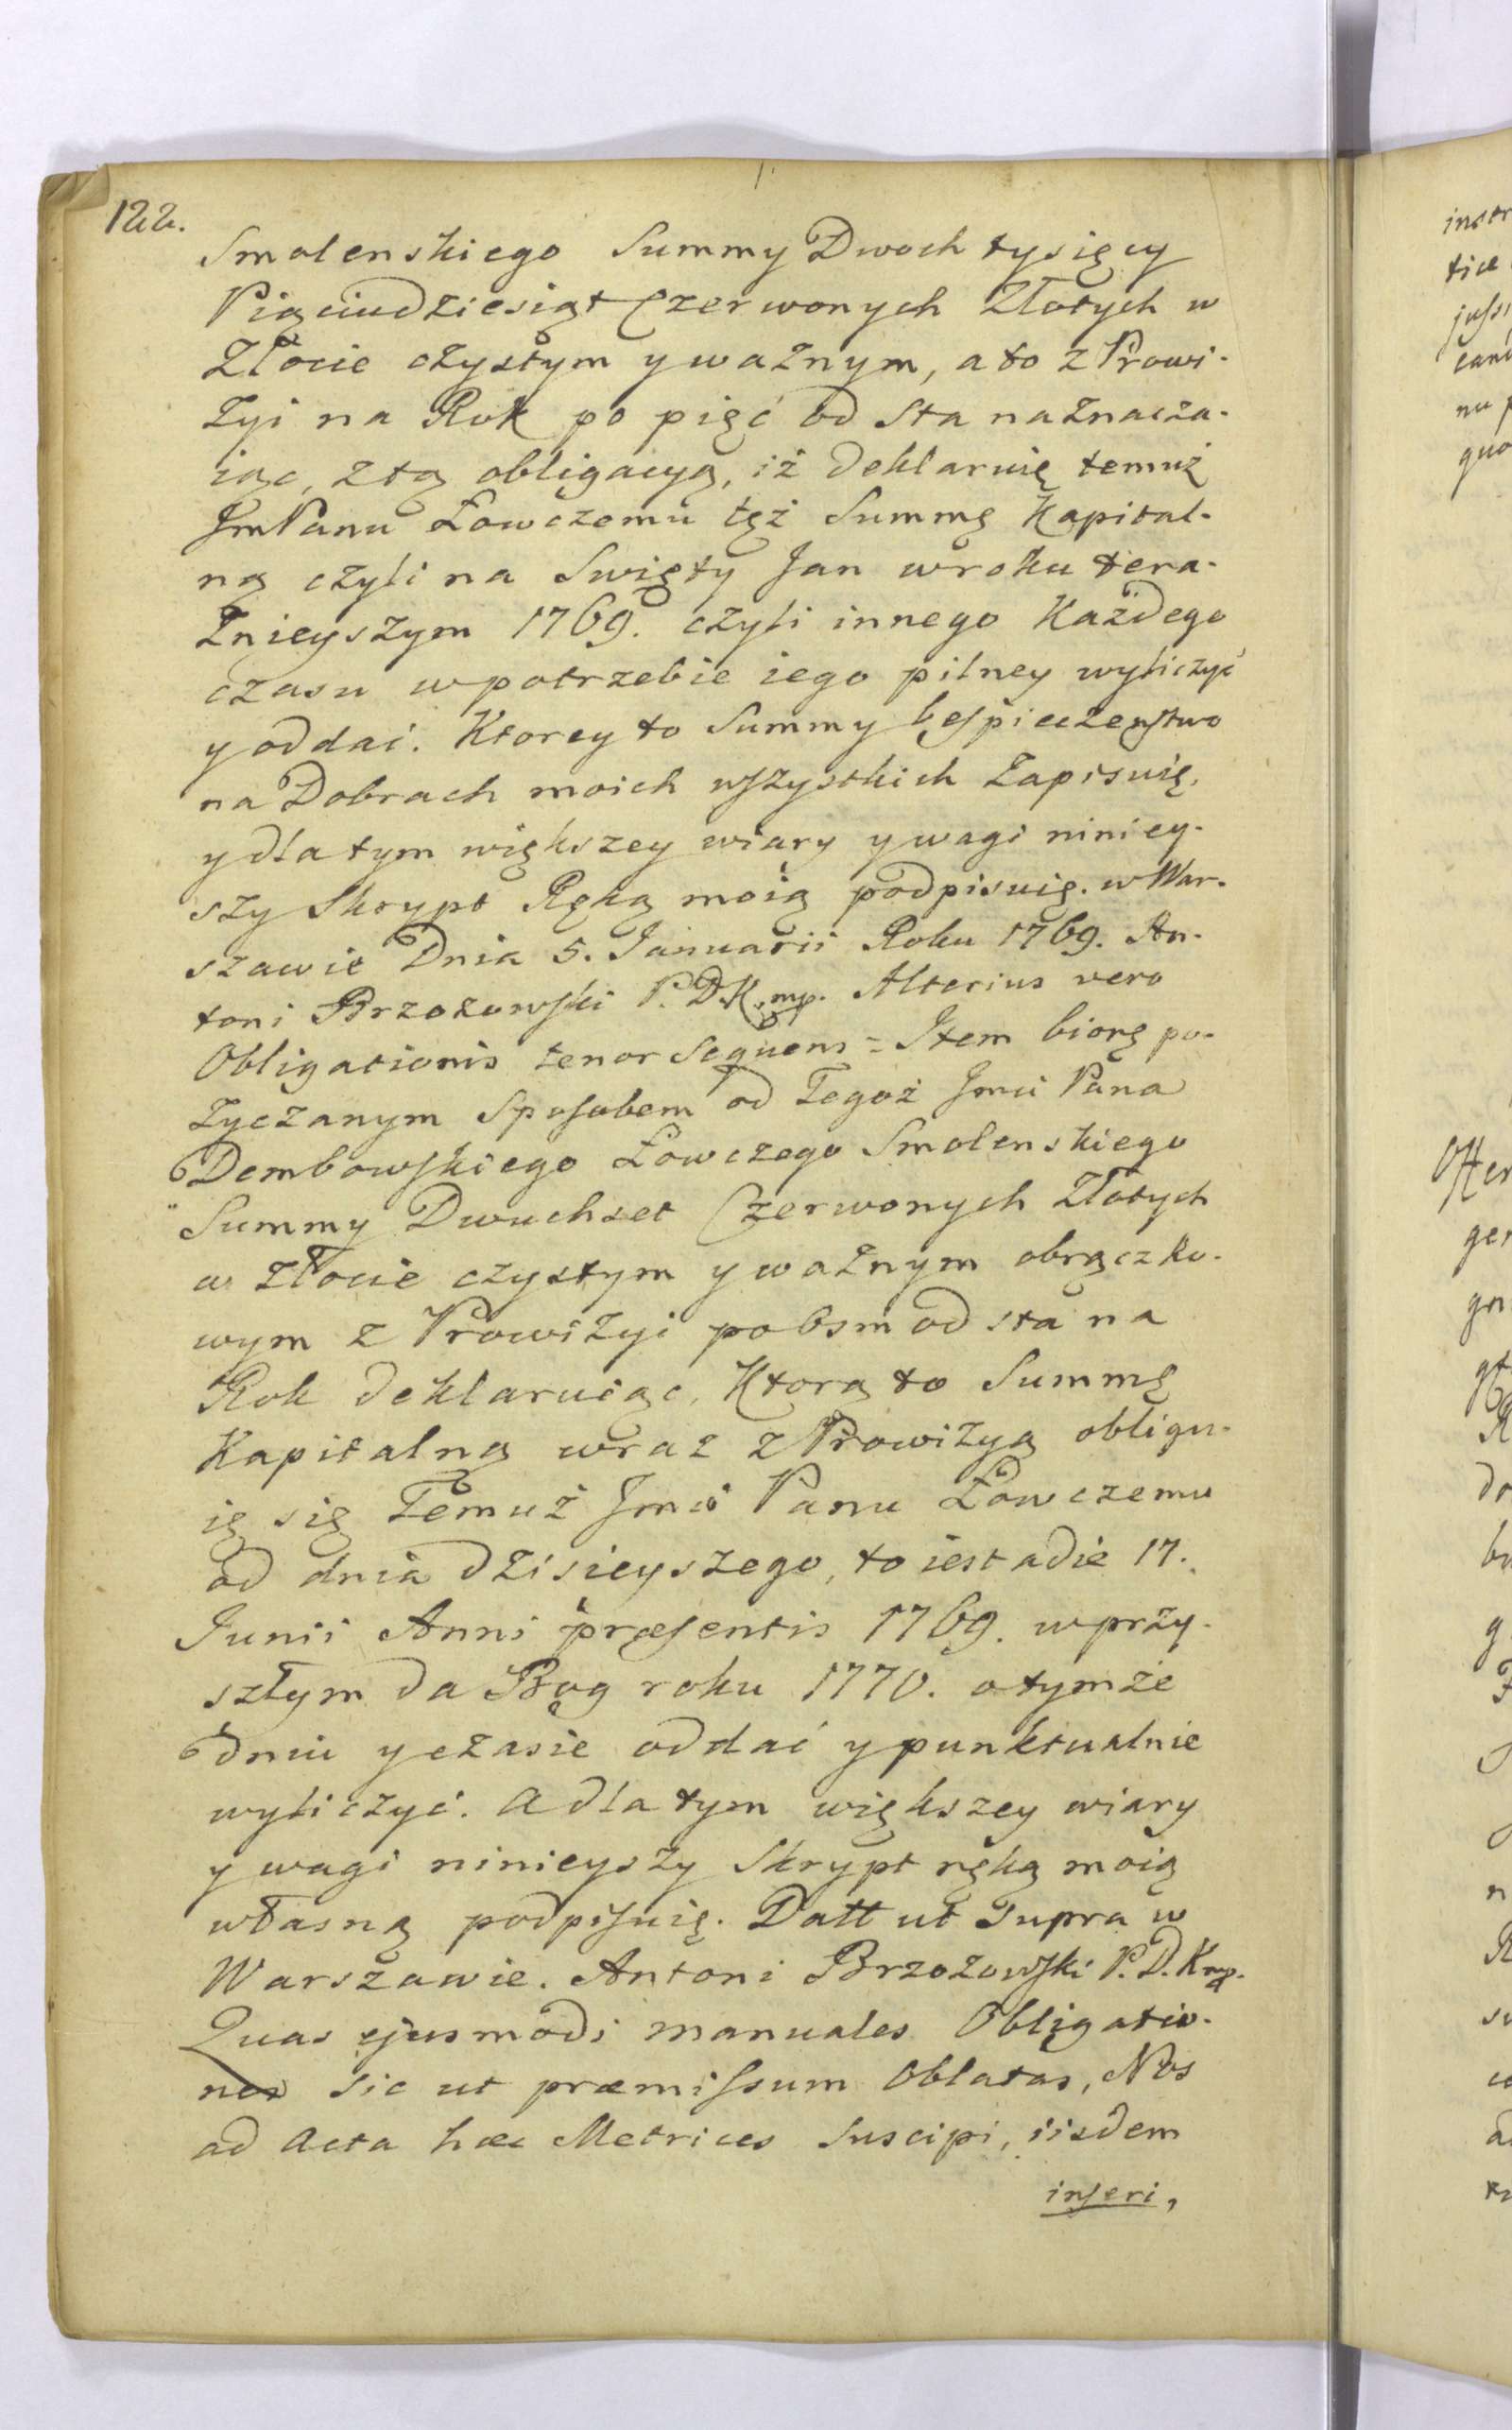 122.
Smolenskiego Summy Dwoch tysięcy
Pięciudziesiąt Czerwonych Złotych w
Złocie czystym y ważnym, a to z Prowi-
zyi na Rok po pięć od Sta naznacza-
iąc, z tą obligacyą, iż deklaruię temuż
JmPanu Łowczemu tęż Summę Kapital-
ną czyli na Swięty Jan w roku tera-
znieyszym 1769. czyli innego Każdego
czasu w potrzebie iego pilney wyliczyć
y oddać. Ktorey to Summy bespieczenstwo
na Dobrach moich wszystkich Zapisuię,
y dla tym większey wiary y wagi niniey-
szy Skrypt Ręką moią podpisuię. w War-
szawie Dnia 5. Januarii Roku 1769. An-
toni Brzozowski P. D. K. mp. Alterius vero
Obligationis tenor Sequens = Item biorę po-
życzanym Sposobem od Tegoż Jmći Pana
Dembowskiego Łowczego Smolenskiego
Summy Dwuchset Czerwonych Złotych
w Złocie czystym y ważnym obrączko-
wym z Prowizyi po osm od sta na
Rok deklaruiąc, Ktorą to Summę
Kapitalną wraz z Prowizyą obligu-
ię się Temuż Jmći Panu Łowczemu
od dnia dzisieyszego, to iest a die 17.
Junii Anni præsentis 1769. w przy-
szłym da Bog roku 1770. o tymże
dniu y czasie oddać y punktualnie
wyliczyć. A dla tym większey wiary
y wagi ninieyszy Skrypt ręką moią
własną podpisuię. Datt ut Supra w
Warszawie. Antoni Brzozowski P. D. K mp.
Quas ejusmodi manuales Obligatio-
nes sic ut præmissum Oblatas, Nos
ad Acta hæc Metrices Suscipi, iisdem
inseri,